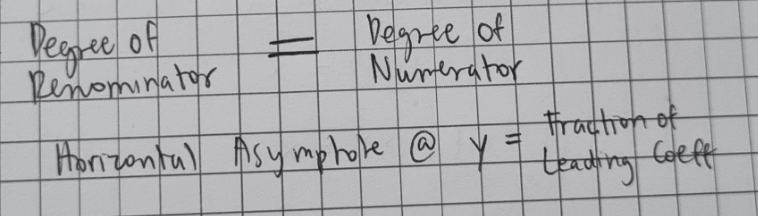 Degree of = Degree of
Denominator Numerator
Horizontal Asymptote @ y = fraction of
Leading Coeff